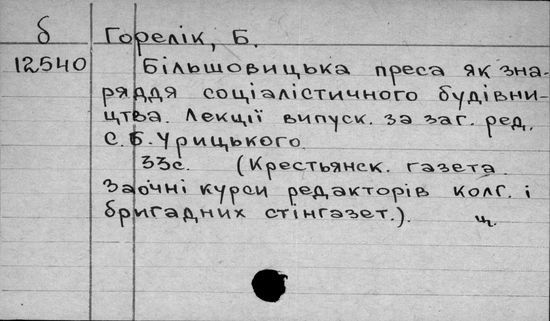 б Горелік, Б.
12540 Більшовицька преса як зна-
ряддя соціалістичного будівни-
цтва. Лекції випуск. за заг. ред.
С. Б. Урицького.
33с. (Крестьянск. газета.
Заочні курси редакторів колг. і
бригадних стінгазет.). ц.